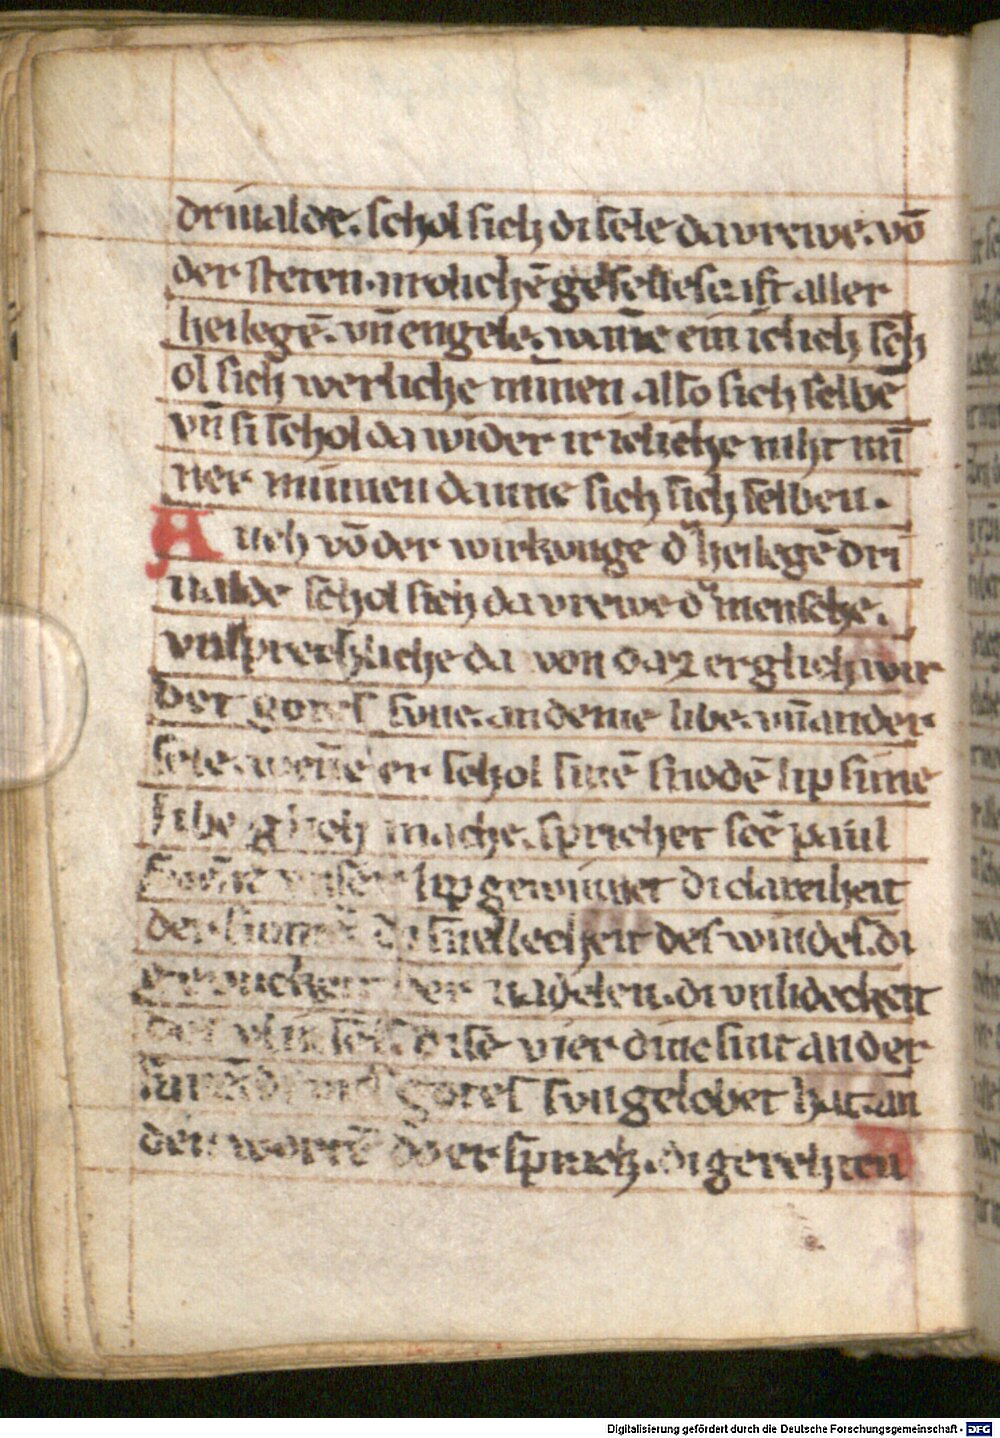 driualde. schol sich di sele da vrewe. võ
der steten. mrolichē geselleschaft aller
heilegē. vn̄ engele. wanne ein iclich sch
ol sich werliche minnen also sich selbē
vn̄ si schol da wider ir icliche niht mi
ner minnen danne sich sich selben.
Auch võ der wirkunge d' heilegē dri
ualde schol sich da vrewe d' mensche.
vnsprechliche da von daz er glich wir
det gotes sune. an deme libe. vn̄ an der
sele. wenne er schol sinē snodē lip sime
libe glich mache. sprichet scē paul
vnser lip gewinnet di clareiheit
der sunnē di snellecheit des windes. di
der nagelen. di vnlidecheit
des dise vier dinc sint an der
gotes sun gelobet hat. an
den wortē do er sprach. di gerehten
Digitalisierung gefördert durch die Deutsche Forschungsgemeinschaft - DFG